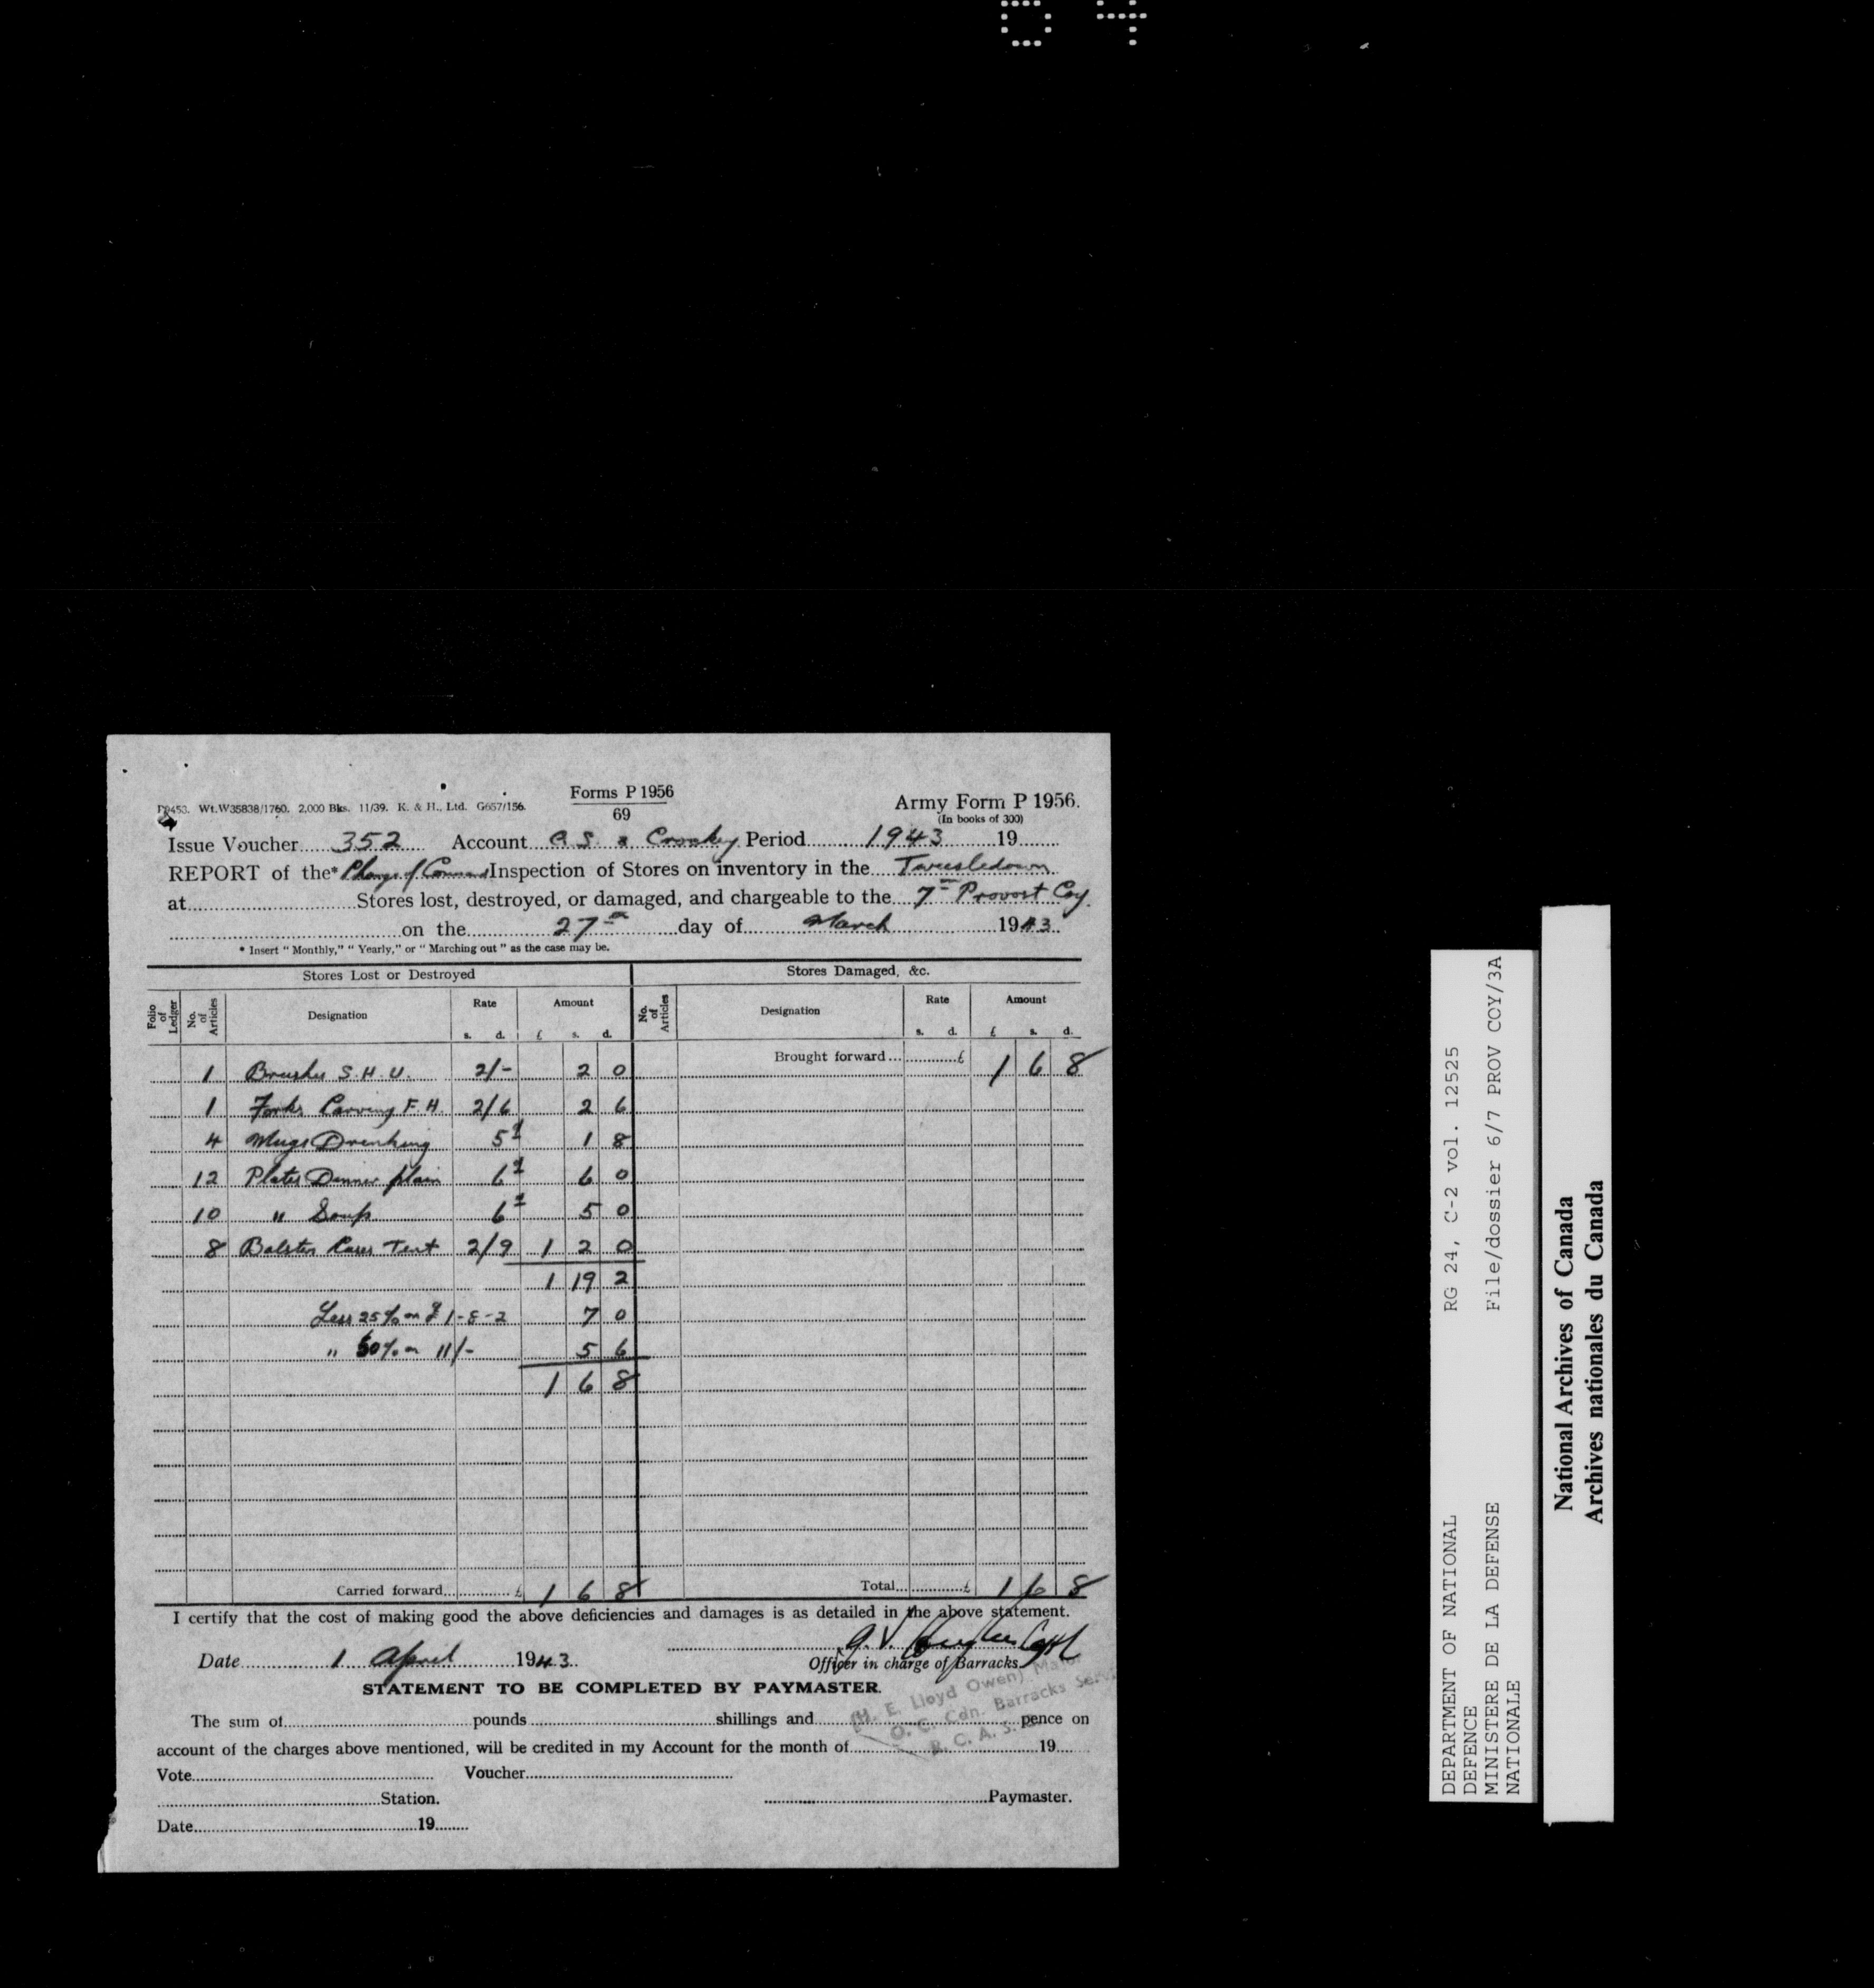 04
Forms P 1956
69
Wt.W35838/1760. 2,000 Bks. 11/39. K. & H., Ltd. G657/156.
Army Form P 1956.
(In books of 300)
Issue Voucher 352 Account Period 1943 19
REPORT of the* Change of Command Inspection of Stores on inventory in the Tweesledown
at Stores lost, destroyed, or damaged, and chargeable to the 7th Provost Coy.
on the 27th day of March 1943.
* Insert " Monthly," " Yearly," or " Marching out " as the case may be.
Stores Lost or Destroyed Stores Damaged, &c.
Folio of Ledger No. of Articles Designation Rate s. d. Amount £ s. d. No. of Articles Designation Rate s. d. Amount £ s. d.
Brought forward... £ 1 6 8
1 Brushes S.H.U. 2/- 2 0
1 Forks Carving F.H. 2/6 2 6
4 Mugs Drinking 5d 1 8
12 Plates Dinner plain 6d 6 0
10 " Soup 6d 5 0
8 Bolster Cases Tent 2/9 1 2 0
1 19 2
Less 25% on £1-8-2 7 0
" 50% on 11/- 5 6
1 6 8
Carried forward... £ 1 6 8 Total... £ 1 6 8
I certify that the cost of making good the above deficiencies and damages is as detailed in the above statement.
Date 1 April 1943. Officer in charge of Barracks
STATEMENT TO BE COMPLETED BY PAYMASTER.
(H. E. Lloyd Owen) Major
O. C. Cdn. Barracks
The sum of pounds shillings and pence on
account of the charges above mentioned, will be credited in my Account for the month of 19
Vote Voucher
Station. Paymaster.
Date 19
DEPARTMENT OF NATIONAL RG 24, C-2 vol. 12525
DEFENCE
MINISTERE DE LA DEFENSE File/dossier 6/7 PROV COY/3A
NATIONALE
National Archives of Canada
Archives nationales du Canada